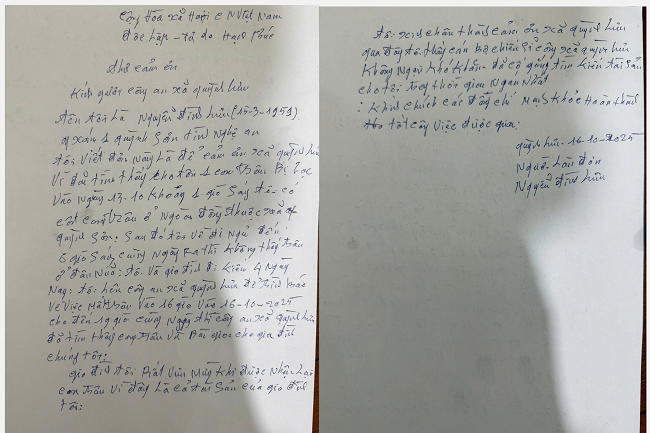 Cộng Hòa xã Hội c N Việt Nam
Độc lập - tự do Hạnh Phúc
thư cảm ơn
Kính gưởi công an xã quỳnh lưu
tên tôi là Nguyễn đình lưu (15-3-1959)
ở xóm 1 quỳnh Sơn tỉn Nghệ an
tôi viết đơn này là để cảm ơn xã quỳnh lưu
Vì đã tìm thấy cho tôi 1 con trâu Bị lạc
vào Ngày 13-10 khoảng 1 giờ sáng tôi có
cột con trâu ở Ngoài đồng thuộc xã
quỳnh Sơn: Sau đó tôi về đi Ngủ đến
6 giờ sáng cùng Ngày Ra thì không thấy trâu
ở đâu Nữ: tôi và gia đình đi kiếm 4 Ngày
Nay: tôi lên công an xã quỳnh lưu để trìn báo
về việc mất trâu vào 16 giờ vào 16-10-2025
cho đến 19 giờ cùng Ngày thì công an xã quỳnh lưu
đã tìm thấy con trâu và Bàn giao cho gia đình
chúng tôi:
gia đình tôi Rất vui mừng khi được nhận lại
con trâu vì đây là cả tài sản của gia đình
tôi:
tôi xin chân thành cảm ơn xã quỳnh lưu
qua đây tôi thấy cán bộ chiến sĩ công xã quỳnh lưu
không ngại khó khăn đã cố gắng tìm kiến tài sản
cho tôi trong thời gian ngắn nhất
: kính chúc các đồng chí mạnh khỏe hoàn thành
tốt công việc được giao:
quỳnh lưu-16-10-2025
người làm đơn
Nguyễn đình lưu